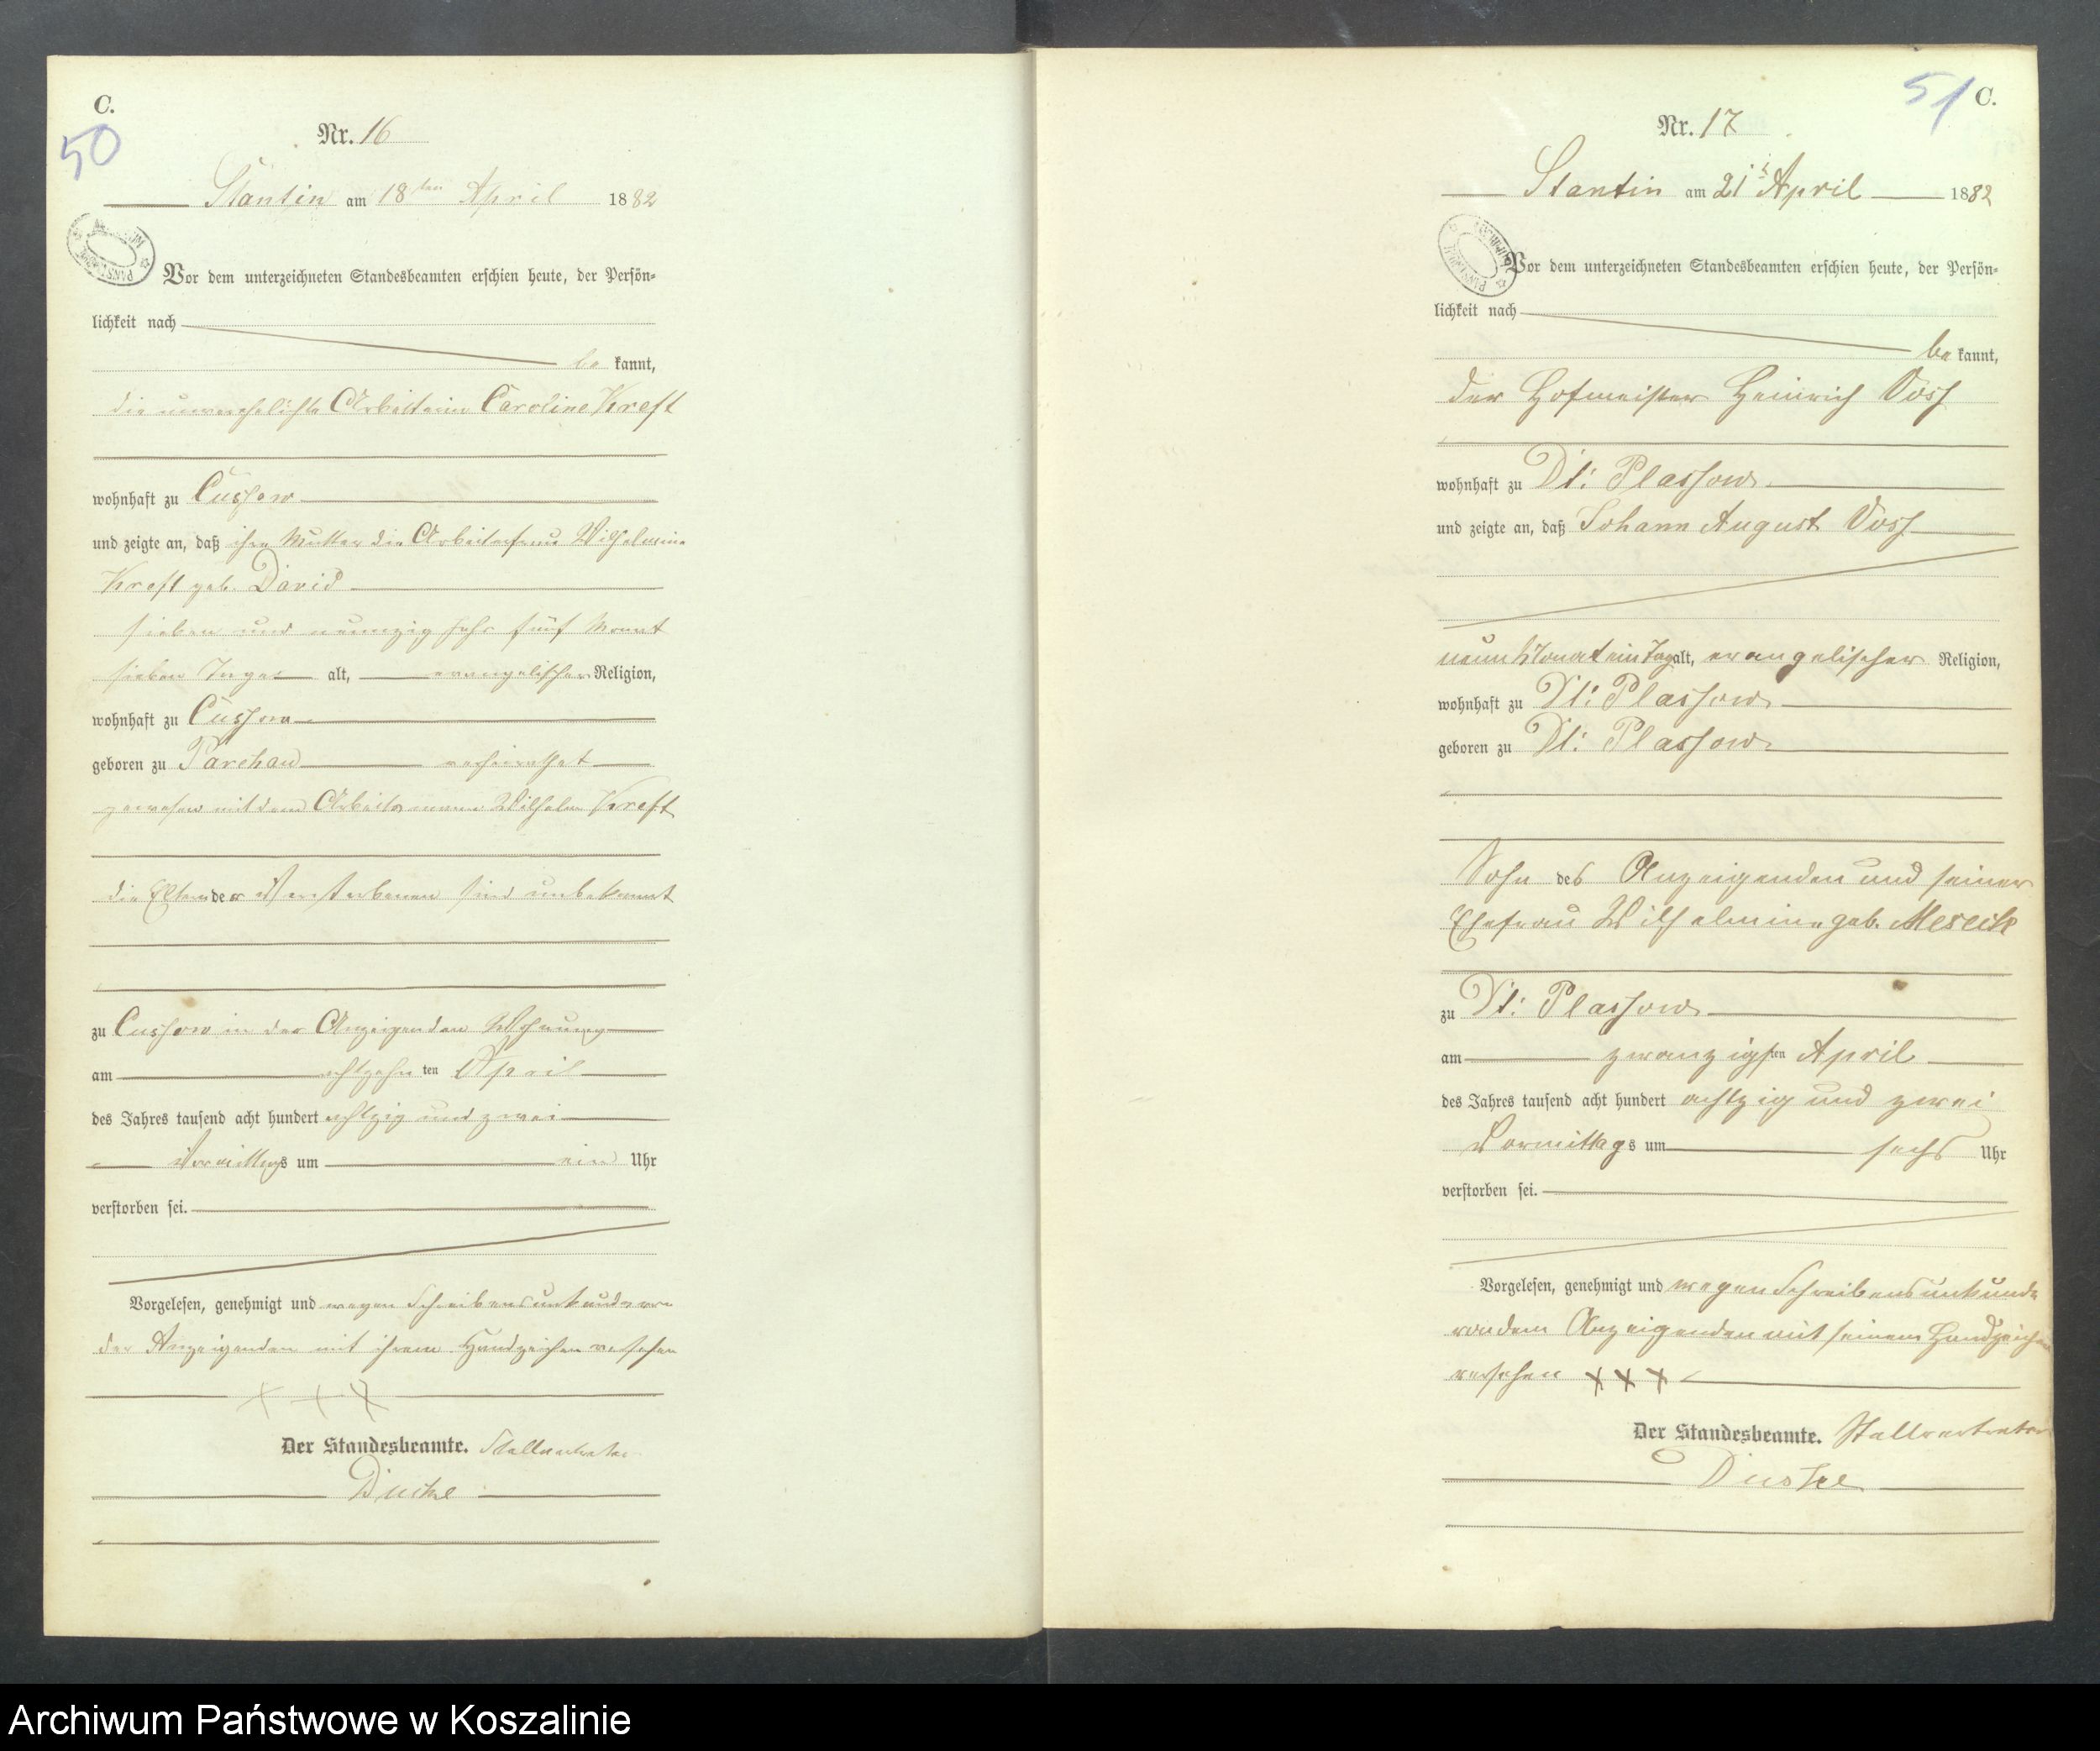 C.
50
Nr. 16
Stantin am 18ten April 1882
Vor dem unterzeichneten Standesbeamten erschien heute, der Persön-
lichkeit nach
be kannt,
die unverehelichte Arbeiterin Caroline Kreft
wohnhaft zu Cussow
und zeigte an, daß ihre Mutter die Arbeiterfrau Wilhelmine
Kreft geb. David
sieben und neunzig Jahr fünf Monat
sieben Tage alt, evangelischer Religion,
wohnhaft zu Cussow
geboren zu Parchau verheirathet
gewesen mit dem Arbeitsmann Wilhelm Kreft
die Eltern der Verstorbenen sind unbekannt
zu Cussow in der Anzeigenden Wohnung
am achtzehn ten April
des Jahres tausend acht hundert achtzig und zwei
Vormittags um ein Uhr
verstorben sei.
Vorgelesen, genehmigt und wegen Schreibensunkunde von
der Anzeigenden mit ihrem Handzeichen versehen
+ + +
Der Standesbeamte. Stellvertreter
PANSTWOWE
51 C.
Nr. 17
Stantin am 21t April 1882
Vor dem unterzeichneten Standesbeamten erschien heute, der Persön-
lichkeit nach
be kannt,
der Hofmeister Heinrich Voss
wohnhaft zu Dt: Plassow
und zeigte an, daß Johann August Voss
neun Monat ein Tag alt, evangelischer Religion,
wohnhaft zu Dt: Plassow
geboren zu Dt: Plassow
Sohn des Anzeigenden und seiner
Ehefrau Wilhelmine geb. Meseck
zu Dt: Plassow
am zwanzigsten April
des Jahres tausend acht hundert achtzig und zwei
Vormittags um sechs Uhr
verstorben sei.
Vorgelesen, genehmigt und wegen Schreibensunkunde
von dem Anzeigenden mit seinem Handzeichen
versehen + + +
Der Standesbeamte. Stellvertreter
Archiwum Państwowe w Koszalinie